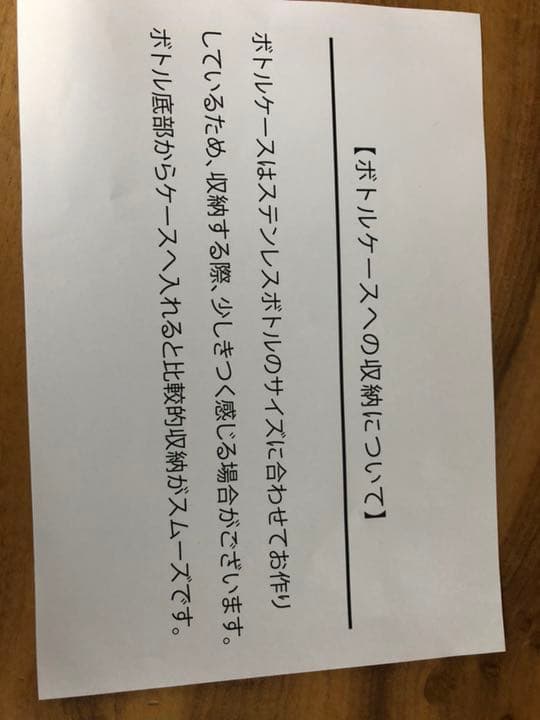 【ボトルケースへの収納について】
ボトルケースはステンレスボトルのサイズに合わせてお作り
しているため、収納する際、少しきつく感じる場合がございます。
ボトル底部からケースへ入れると比較的収納がスムーズです。